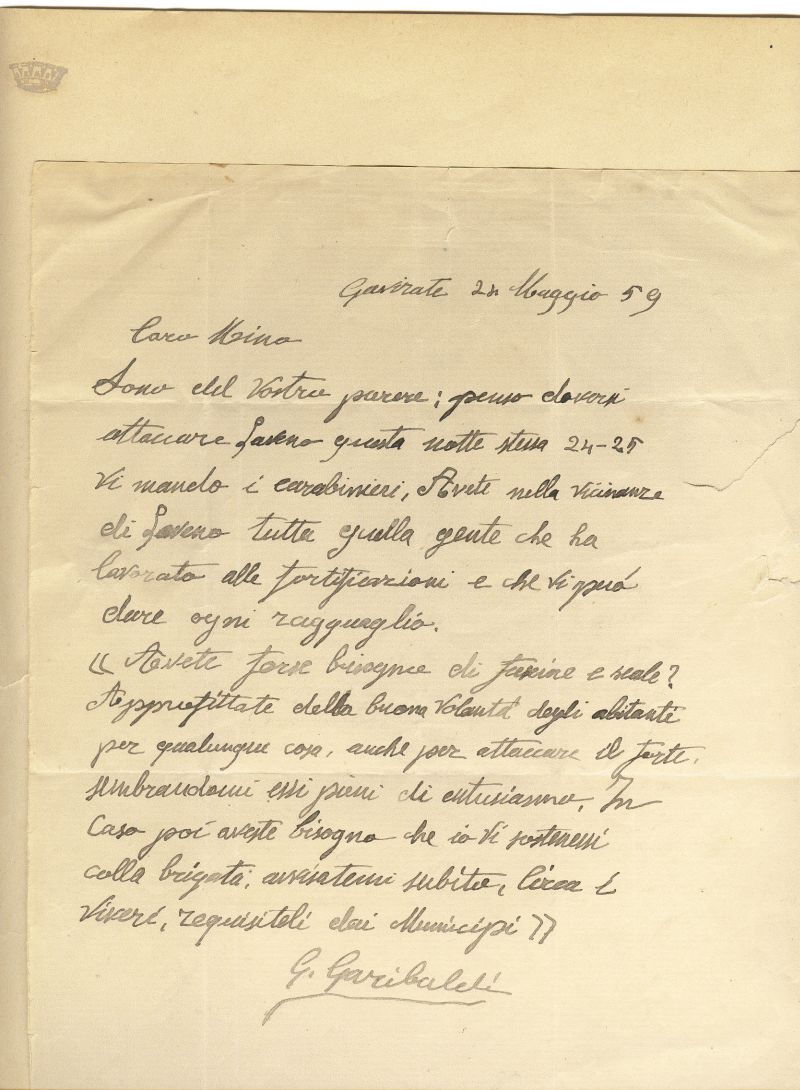 Gavirate 24 Maggio 59
Caro Mino
Sono del vostro parere; penso doversi
attaccare Laveno questa notte stessa 24-25
Vi mando i carabinieri, Avete nella vicinanze
di Laveno tutta quella gente che ha
lavorato alle fortificazioni e che vi può
dare ogni ragguaglio.
« Avete forse bisogno di fascine e scale?
Approfittate della buona volontà degli abitanti
per qualunque cosa, anche per attaccare il forte,
sembrandomi essi pieni di entusiasmo. In
Caso poi aveste bisogno che io vi sostenessi
colla brigata, avvisatemi subito, Circa i
Viveri, requisiteli dai Municipi »
G. Garibaldi